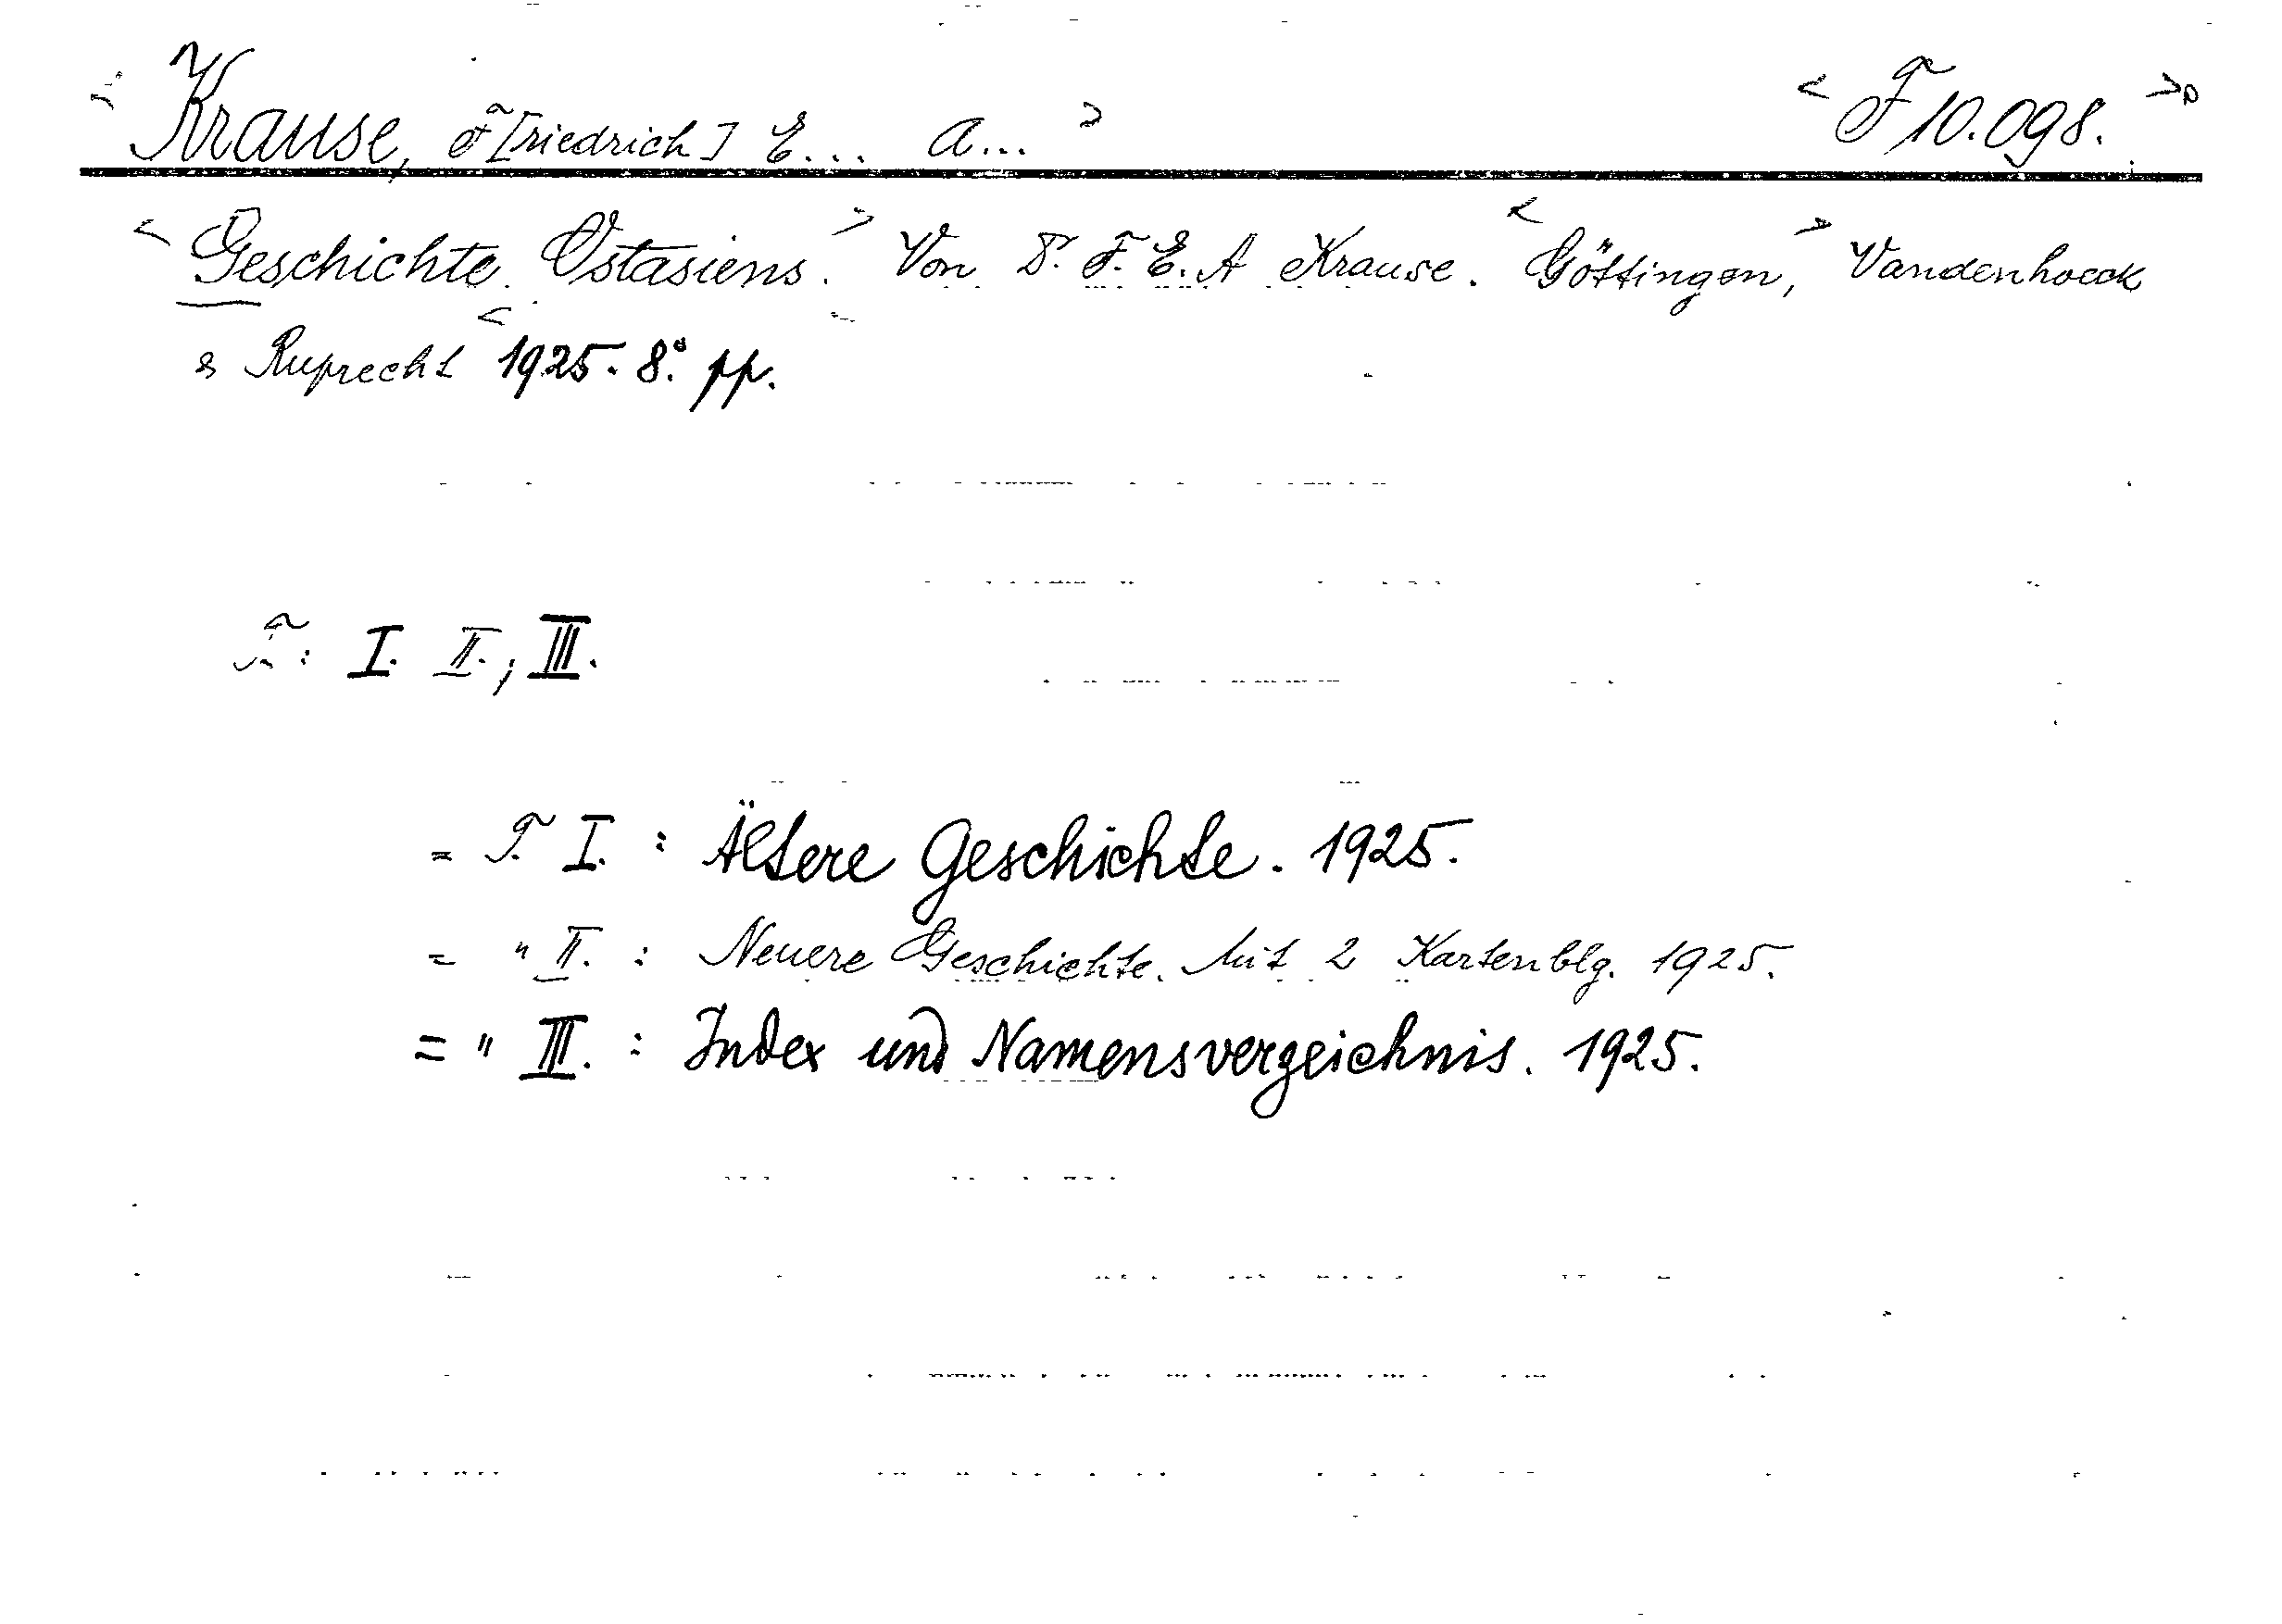 < Krause, F[riedrich] E... A... > < F 10.098. >
< Geschichte Ostasiens. > Von D. F. E. A Krause. < Göttingen, > Vandenhoeck
& Ruprecht < 1925. 8.° pp.
T.: I. II.; III.
= T. I. : Ältere Geschichte. 1925.
= " II. : Neuere Geschichte. Mit 2 Kartenblg. 1925.
= " III. : Index und Namensverzeichnis. 1925.